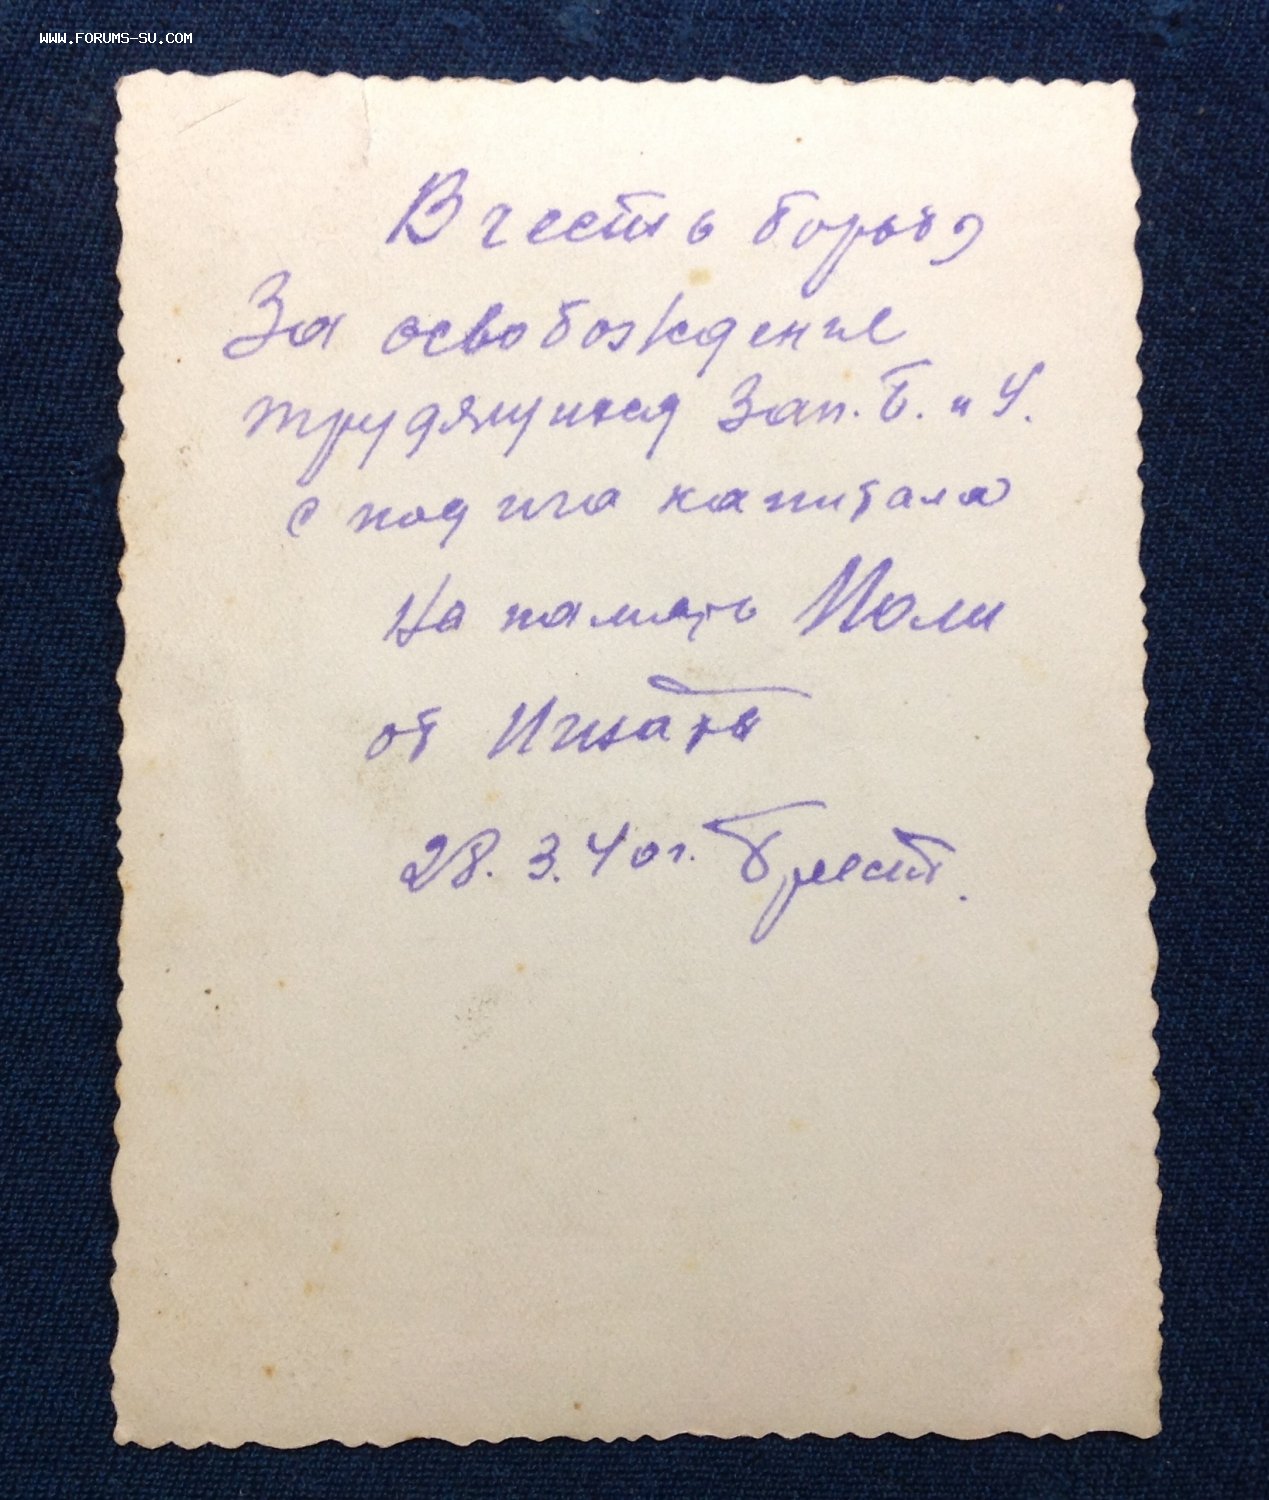 WWW.FORUMS-SU.COM
В честь борьбы
За освобождение
трудящихся Зап. Б. и У.
с под ига капитала
На память Поли
от Игната
28.3.40г. Брест.